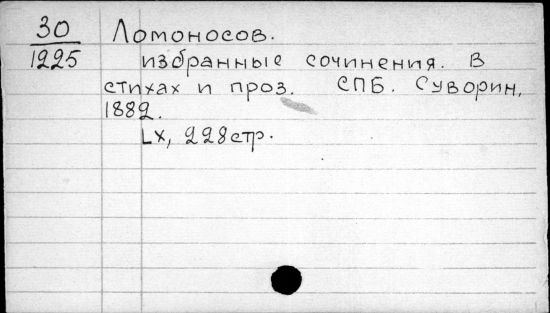 30 Ломоносов.
1225 избранные сочинения. В
стихах и проз. СПБ. Суворин,
1882.
LX, 228стр.